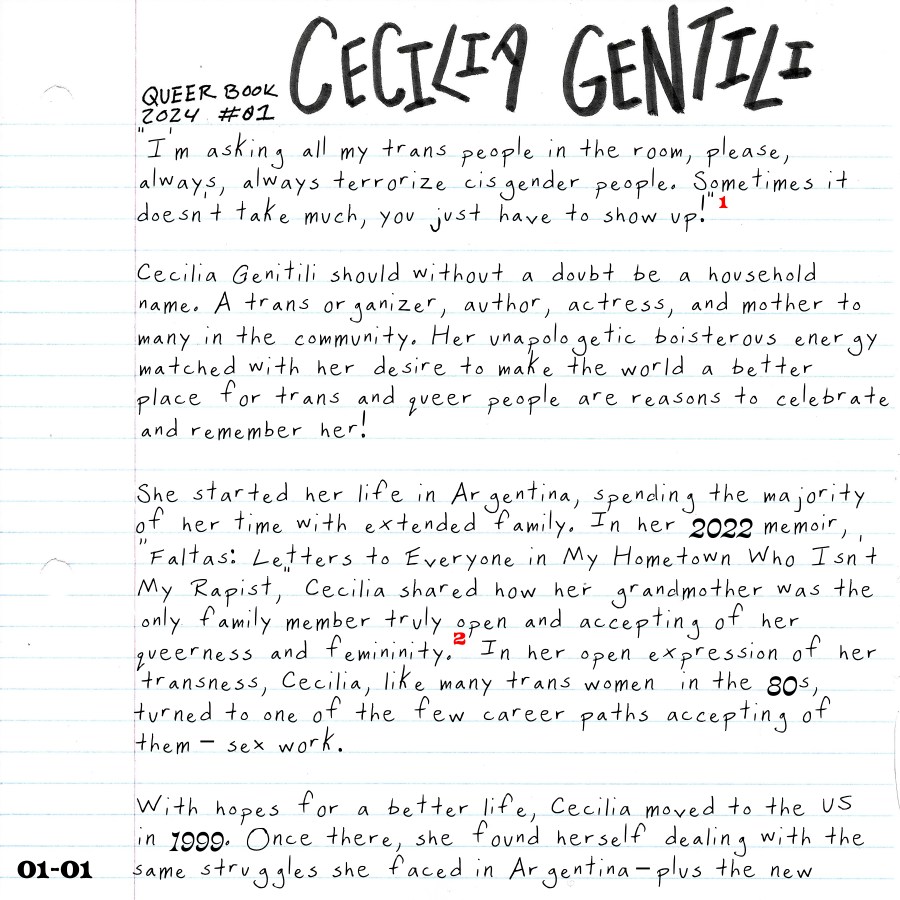 CECILIA GENTILI
QUEER BOOK
2024 #01
"I'm asking all my trans people in the room, please,
always, always terrorize cisgender people. Sometimes it
doesn't take much, you just have to show up!"1
Cecilia Genitili should without a doubt be a household
name. A trans organizer, author, actress, and mother to
many in the community. Her unapologetic boisterous energy
matched with her desire to make the world a better
place for trans and queer people are reasons to celebrate
and remember her!
She started her life in Argentina, spending the majority
of her time with extended family. In her 2022 memoir,
"Faltas: Letters to Everyone in My Hometown Who Isn't
My Rapist," Cecilia shared how her grandmother was the
only family member truly open and accepting of her
queerness and femininity.2 In her open expression of her
transness, Cecilia, like many trans women in the 80s,
turned to one of the few career paths accepting of
them - sex work.
With hopes for a better life, Cecilia moved to the US
in 1999. Once there, she found herself dealing with the
01-01 same struggles she faced in Argentina - plus the new